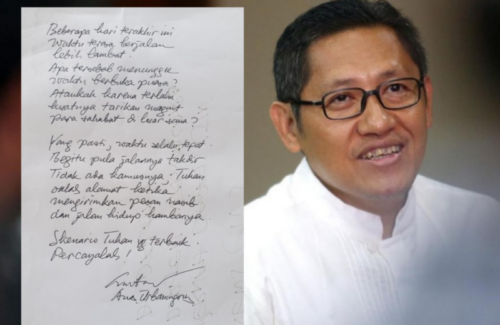 Beberapa hari terakhir ini
waktu terasa berjalan
lebih lambat.
Apa tersebab menunggu
waktu berbuka puasa?
Ataukah karena terlalu
kuatnya tarikan magnit
para sahabat di luar sana?
Yang pasti, waktu selalu tepat
Begitu pula jalannya takdir
Tidak ada kamusnya Tuhan
salah alamat ketika
mengirimkan pesan nasib
dan jalan hidup hambanya
Skenario Tuhan yg terbaik
Percayalah!
Anas Urbaningrum